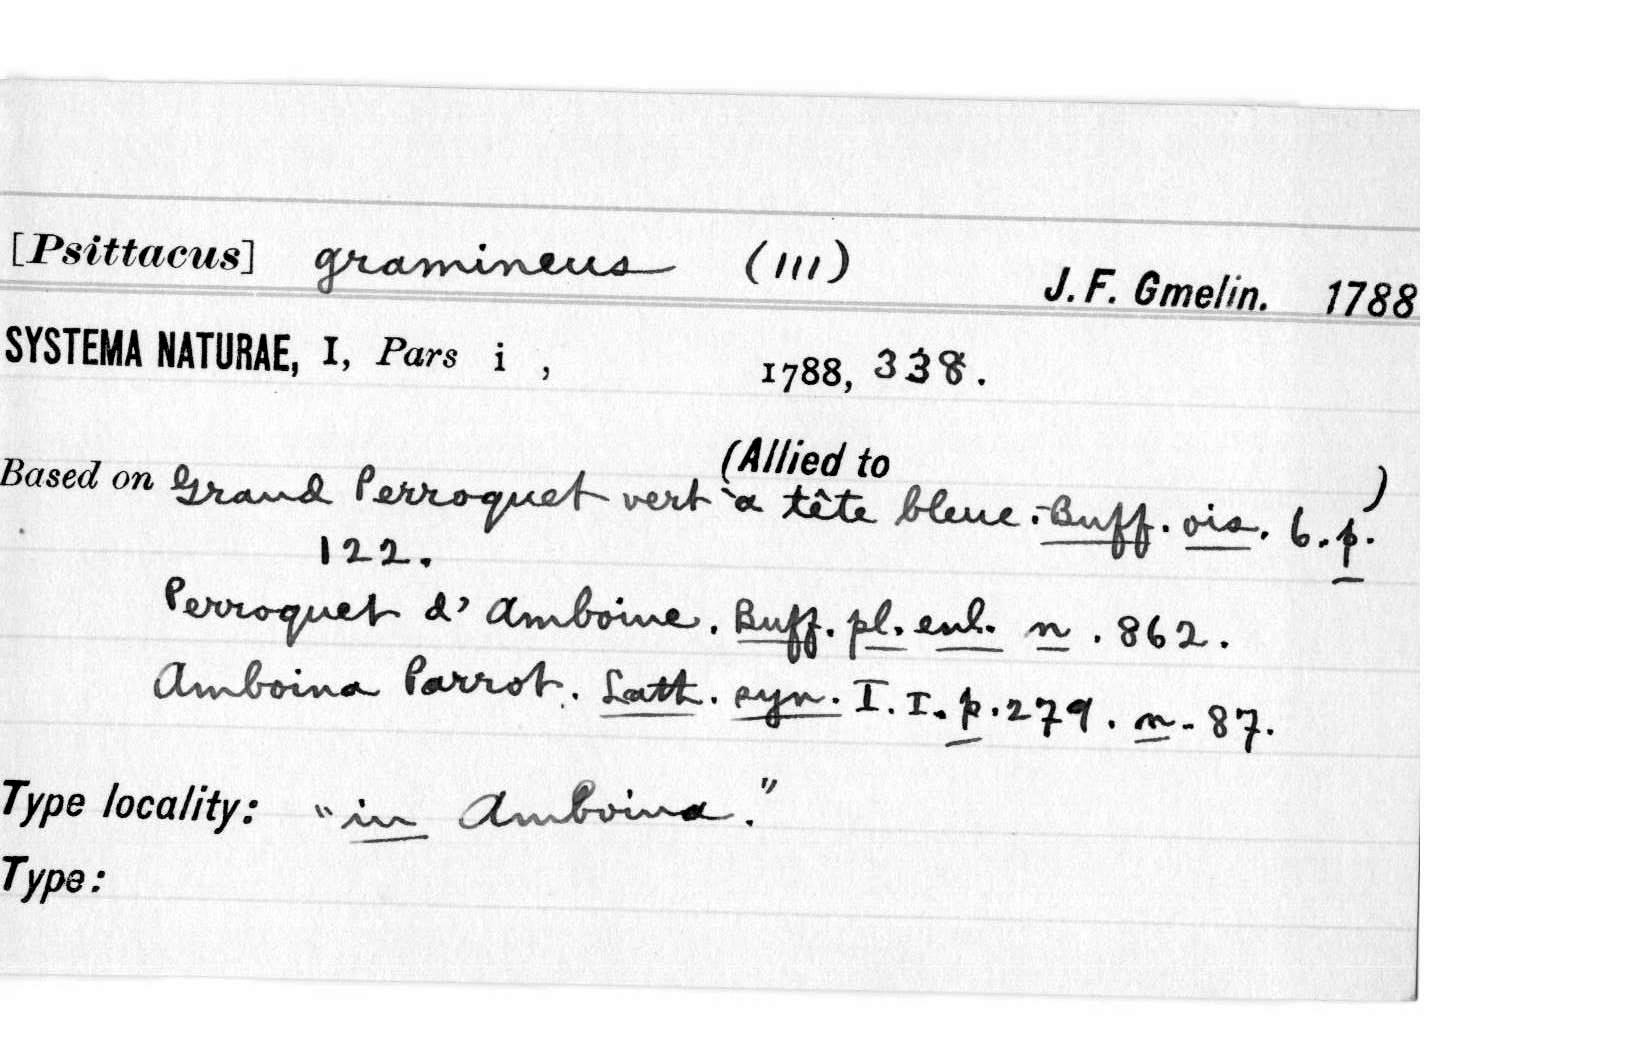 [Psittacus] gramineus (III) J. F. Gmelin. 1788
SYSTEMA NATURAE, I, Pars i , 1788, 338.
(Allied to )
Based on Grand Perroquet vert à tête bleue. Buff. ois. 6. p.
122.
Perroquet d' Amboine. Buff. pl. enl. n. 862.
Amboina Parrot. Lath. syn. I. I. p. 279. n. 87.
Type locality: "in Amboina."
Type: